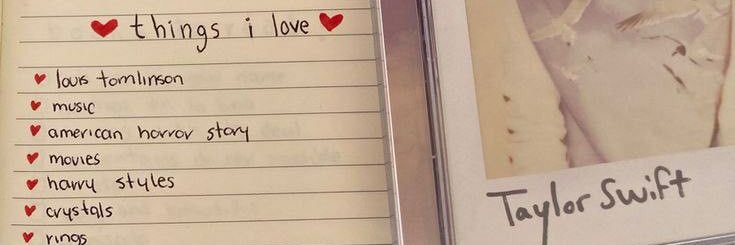 things i love
louis tomlinson
music
american horror story
movies
harry styles
crystals
rings
Taylor Swift